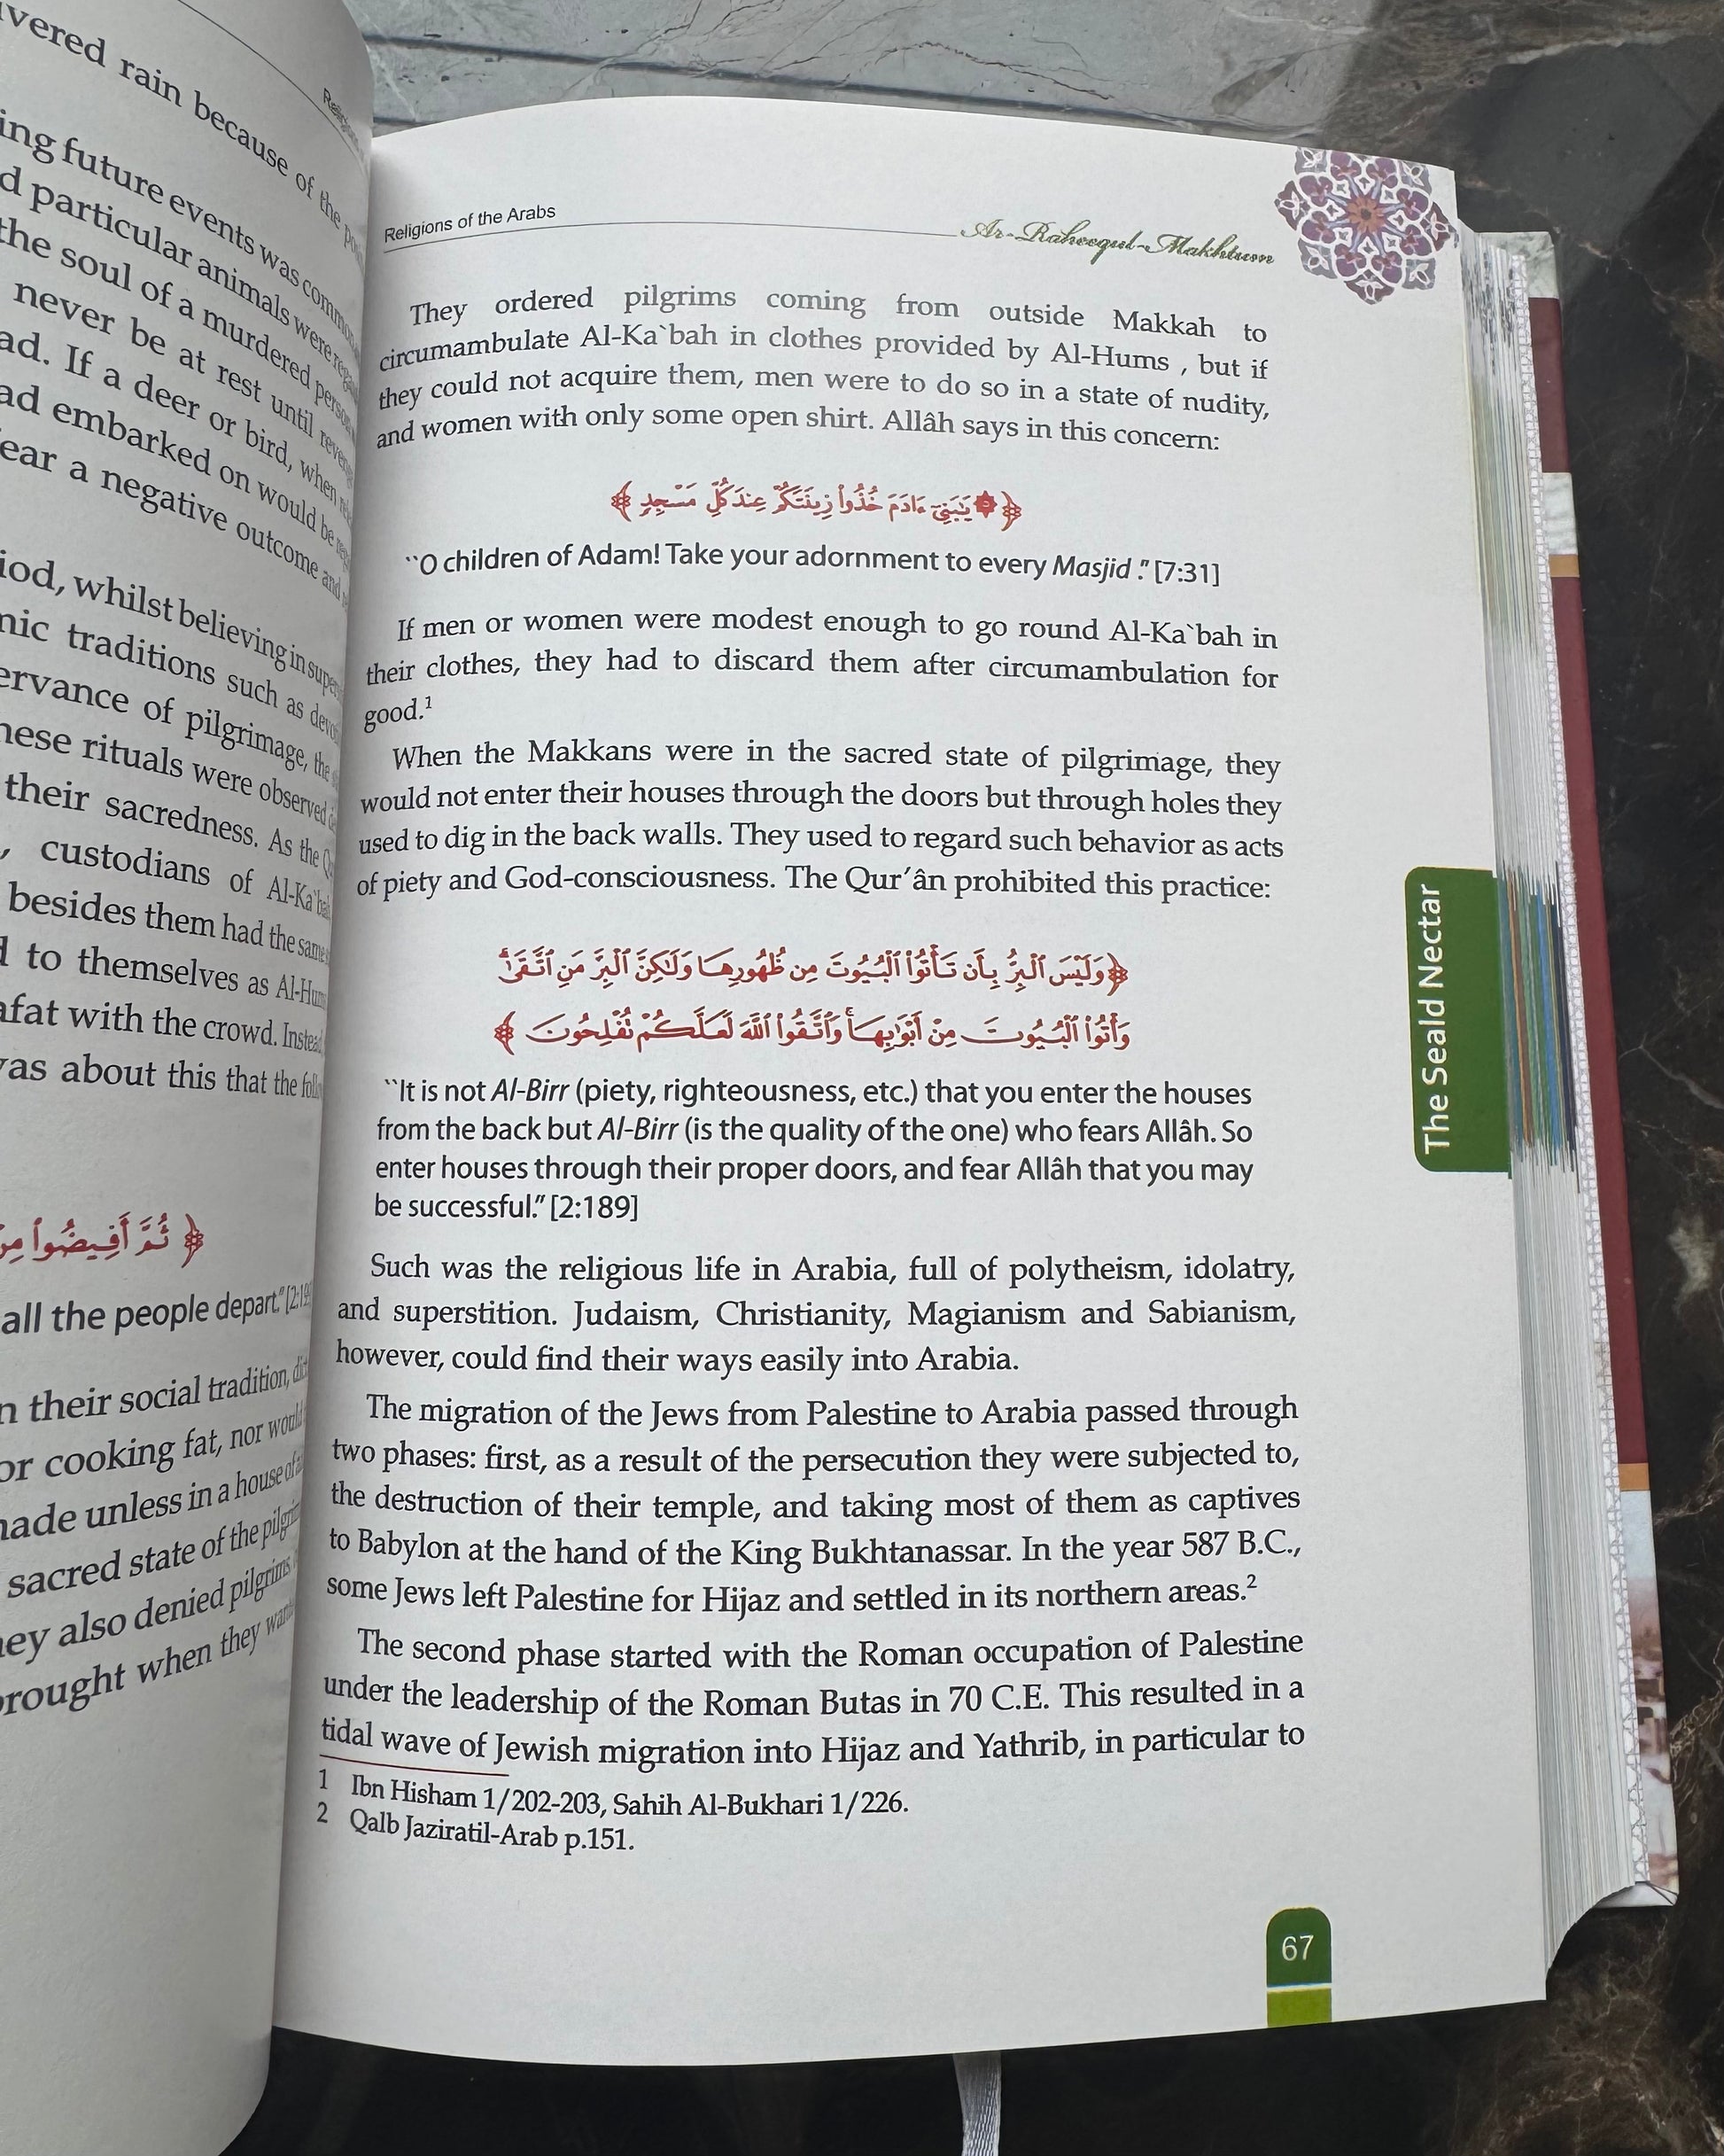 vered rain because of the
ing future events was common
d particular animals were
the soul of a murdered person
never be at rest until
ad. If a deer or bird, when
ad embarked on would be
ear a negative outcome and
iod, whilst believing in
nic traditions such as
ervance of pilgrimage, the
hese rituals were observed
their sacredness. As the
, custodians of
besides them had the same
d to themselves as
afat with the crowd. Instead
was about this that the
﴿ ثُمَّ أَفِيضُوا۟ مِنْ
all the people depart."
n their social tradition,
or cooking fat, nor would
made unless in a house of
sacred state of the
hey also denied pilgrims
brought when they
Religions of the Arabs
Ar-Raheequl-Makhtum
They ordered pilgrims coming from outside Makkah to
circumambulate Al-Ka`bah in clothes provided by Al-Hums , but if
they could not acquire them, men were to do so in a state of nudity,
and women with only some open shirt. Allâh says in this concern:
﴿ ۞ يَـٰبَنِىٓ ءَادَمَ خُذُوا۟ زِينَتَكُمْ عِندَ كُلِّ مَسْجِدٍ ﴾
``O children of Adam! Take your adornment to every Masjid ." [7:31]
If men or women were modest enough to go round Al-Ka`bah in
their clothes, they had to discard them after circumambulation for
good.1
When the Makkans were in the sacred state of pilgrimage, they
would not enter their houses through the doors but through holes they
used to dig in the back walls. They used to regard such behavior as acts
of piety and God-consciousness. The Qur'ân prohibited this practice:
﴿ وَلَيْسَ ٱلْبِرُّ بِأَن تَأْتُوا۟ ٱلْبُيُوتَ مِن ظُهُورِهَا وَلَـٰكِنَّ ٱلْبِرَّ مَنِ ٱتَّقَىٰ ۗ
وَأْتُوا۟ ٱلْبُيُوتَ مِنْ أَبْوَٰبِهَا ۚ وَٱتَّقُوا۟ ٱللَّهَ لَعَلَّكُمْ تُفْلِحُونَ ﴾
``It is not Al-Birr (piety, righteousness, etc.) that you enter the houses
from the back but Al-Birr (is the quality of the one) who fears Allâh. So
enter houses through their proper doors, and fear Allâh that you may
be successful." [2:189]
Such was the religious life in Arabia, full of polytheism, idolatry,
and superstition. Judaism, Christianity, Magianism and Sabianism,
however, could find their ways easily into Arabia.
The migration of the Jews from Palestine to Arabia passed through
two phases: first, as a result of the persecution they were subjected to,
the destruction of their temple, and taking most of them as captives
to Babylon at the hand of the King Bukhtanassar. In the year 587 B.C.,
some Jews left Palestine for Hijaz and settled in its northern areas.2
The second phase started with the Roman occupation of Palestine
under the leadership of the Roman Butas in 70 C.E. This resulted in a
tidal wave of Jewish migration into Hijaz and Yathrib, in particular to
1 Ibn Hisham 1/202-203, Sahih Al-Bukhari 1/226.
2 Qalb Jaziratil-Arab p.151.
The Seald Nectar
67